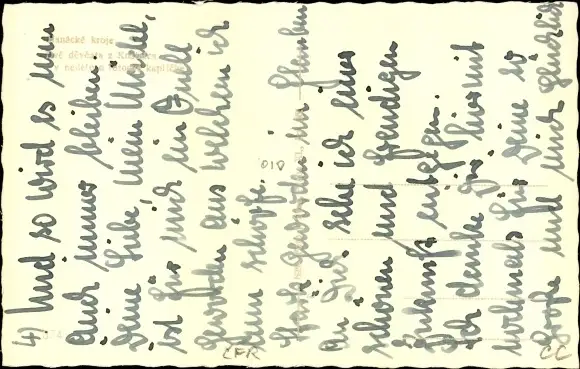 4) Und so wird es nun
auch immer bleiben.
Deine Liebe, mein
ist für mich ein Quell
geworden aus welchem ich
nun schöpfe.
Stark geworden im Glauben
an Dich sehe ich einer
schönen und freudigen
Zukunft entgegen.
Ich danke Dir hiermit
nochmals für Deine so
große und mich
kroje
z
010
CFR
CC